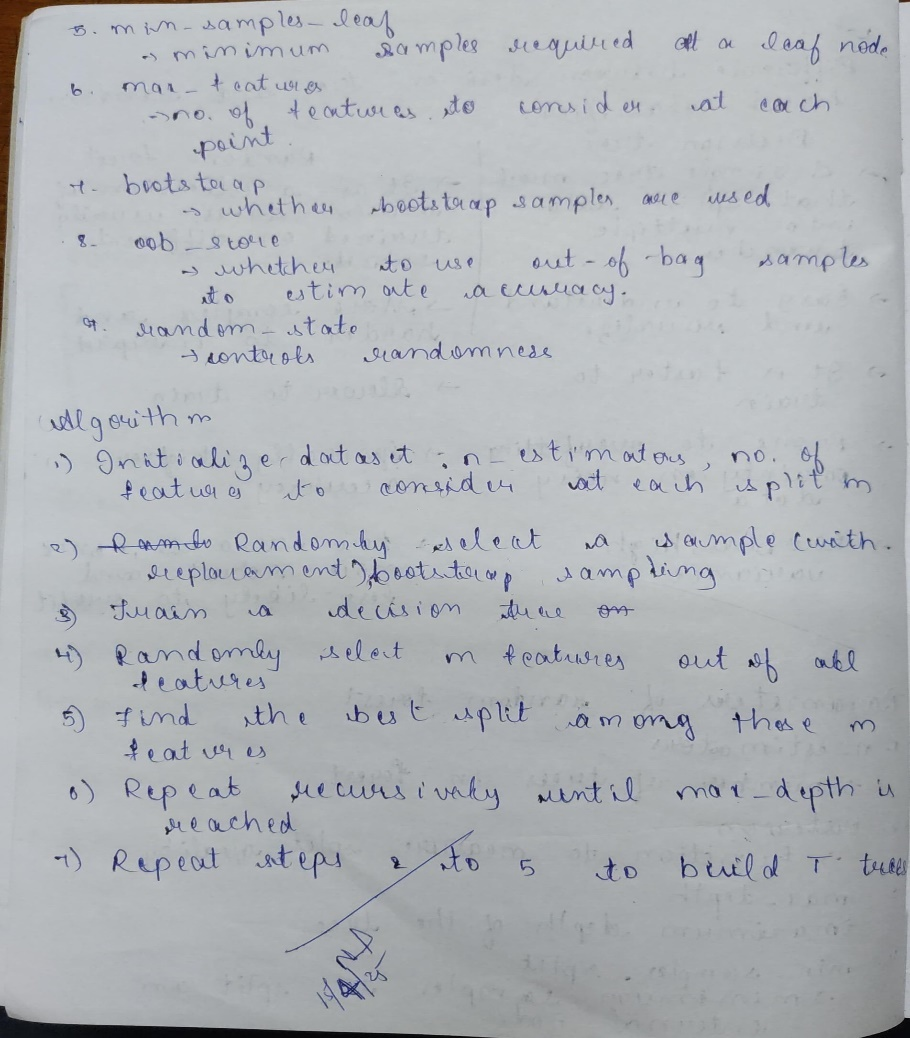 5. min-samples-leaf
→ minimum samples required at a leaf node
6. max-features
→ no. of features to consider at each
point.
7. bootstrap
→ whether bootstrap samples are used
8. oob-score
→ whether to use out-of-bag samples
to estimate accuracy.
9. random-state
→ controls randomness
Algorithm
1) Initialize dataset: n-estimators, no. of
features to consider at each split m
2) Randomly select a sample (with
replacament) bootstrap sampling
3) Train a decision tree on
4) Randomly select m features out of all
features
5) Find the best split among those m
features
6) Repeat recursively until max-depth is
reached
7) Repeat steps 2 to 5 to build T trees